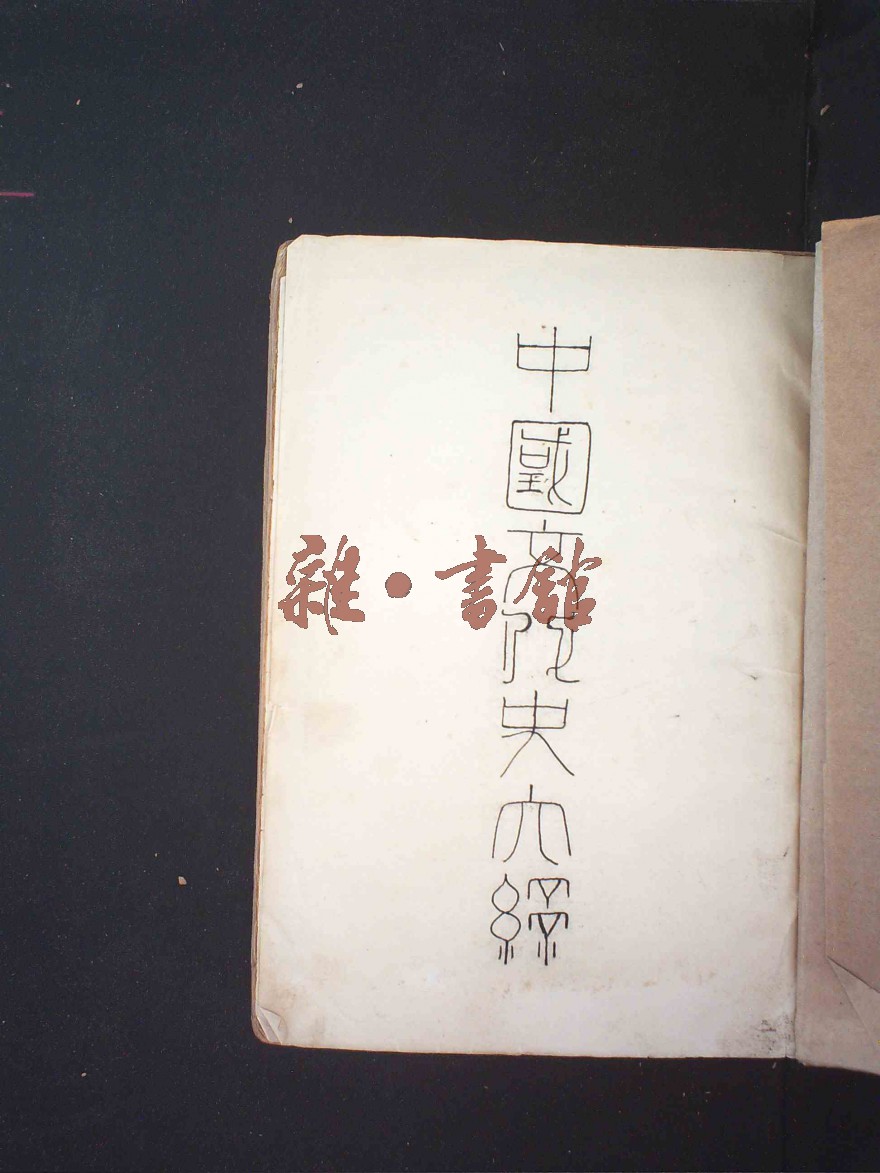 中國文化史大綱
雜·書館